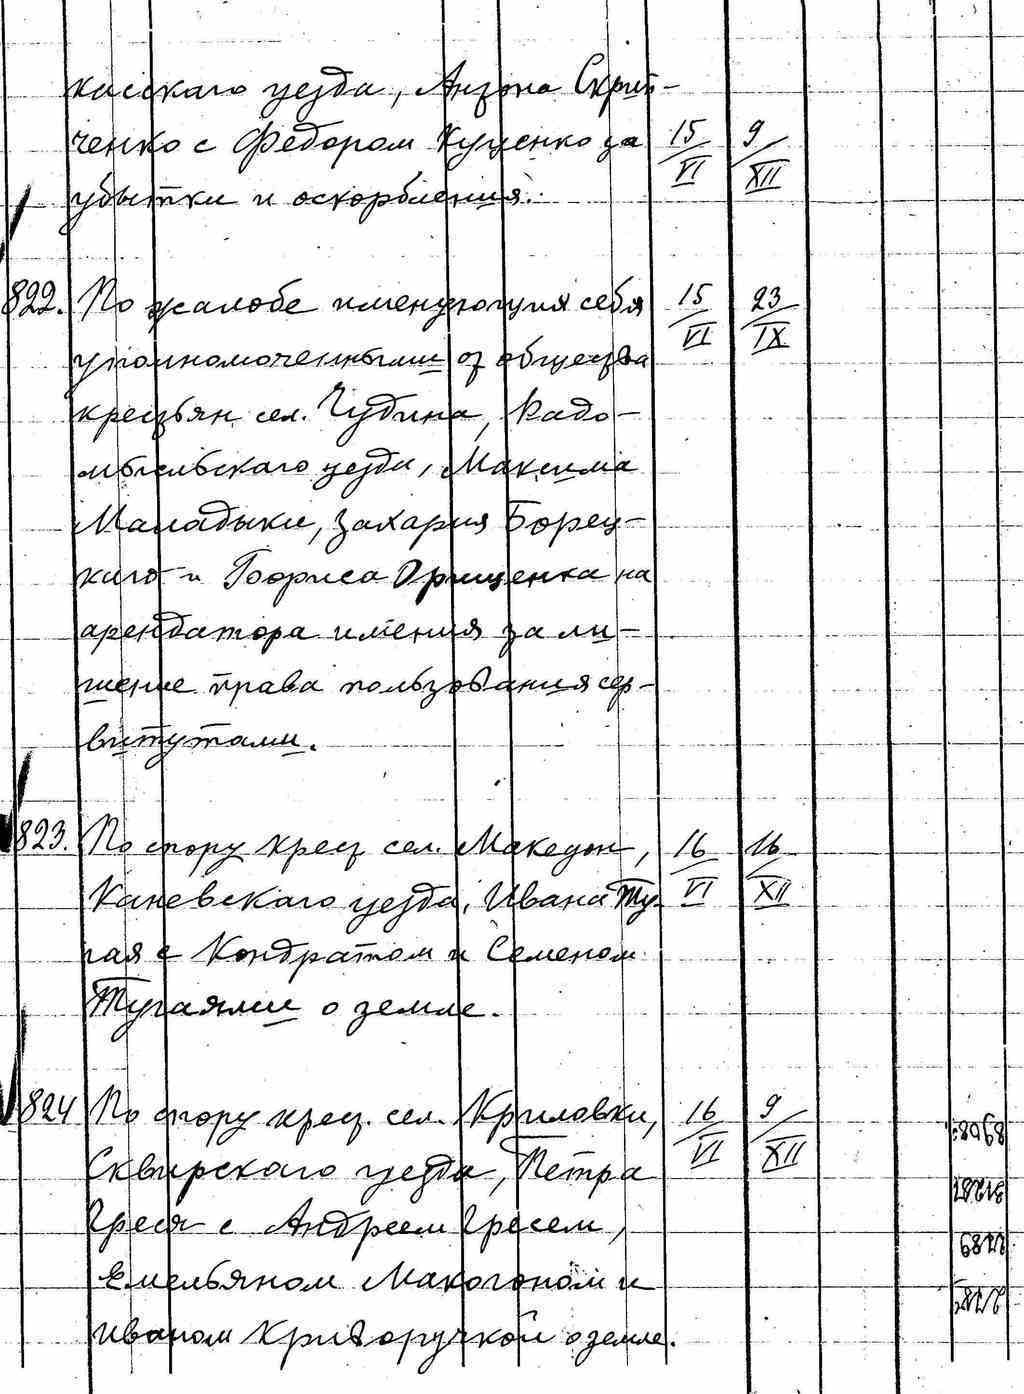 касского уезда, Антона Скрип-
ченко с Федором Куценко за 15/VI 9/XII
убытки и оскорбления.
822. По жалобе именующия себя 15/VI 23/IX
уполномоченными от общества
крестьян сел. Чудина, Радо-
мысльского уезда, Максима
Маладыки, Захария Борец-
кого и Бориса Орищенка на
арендатора имения за ли-
шение права пользования сер-
витутами.
823. По спору крест. сел. Македон, 16/VI 16/XII
Каневского уезда, Ивана Ту-
гая с Кондратом и Семеном
Тугаями о земле.
824 По спору крест. сел. Криловки, 16/VI 9/XII
Сквирского уезда, Петра
Греся с Андреем Гресем,
Емельяном Макогоном и
Иваном Криворучкой о земле.